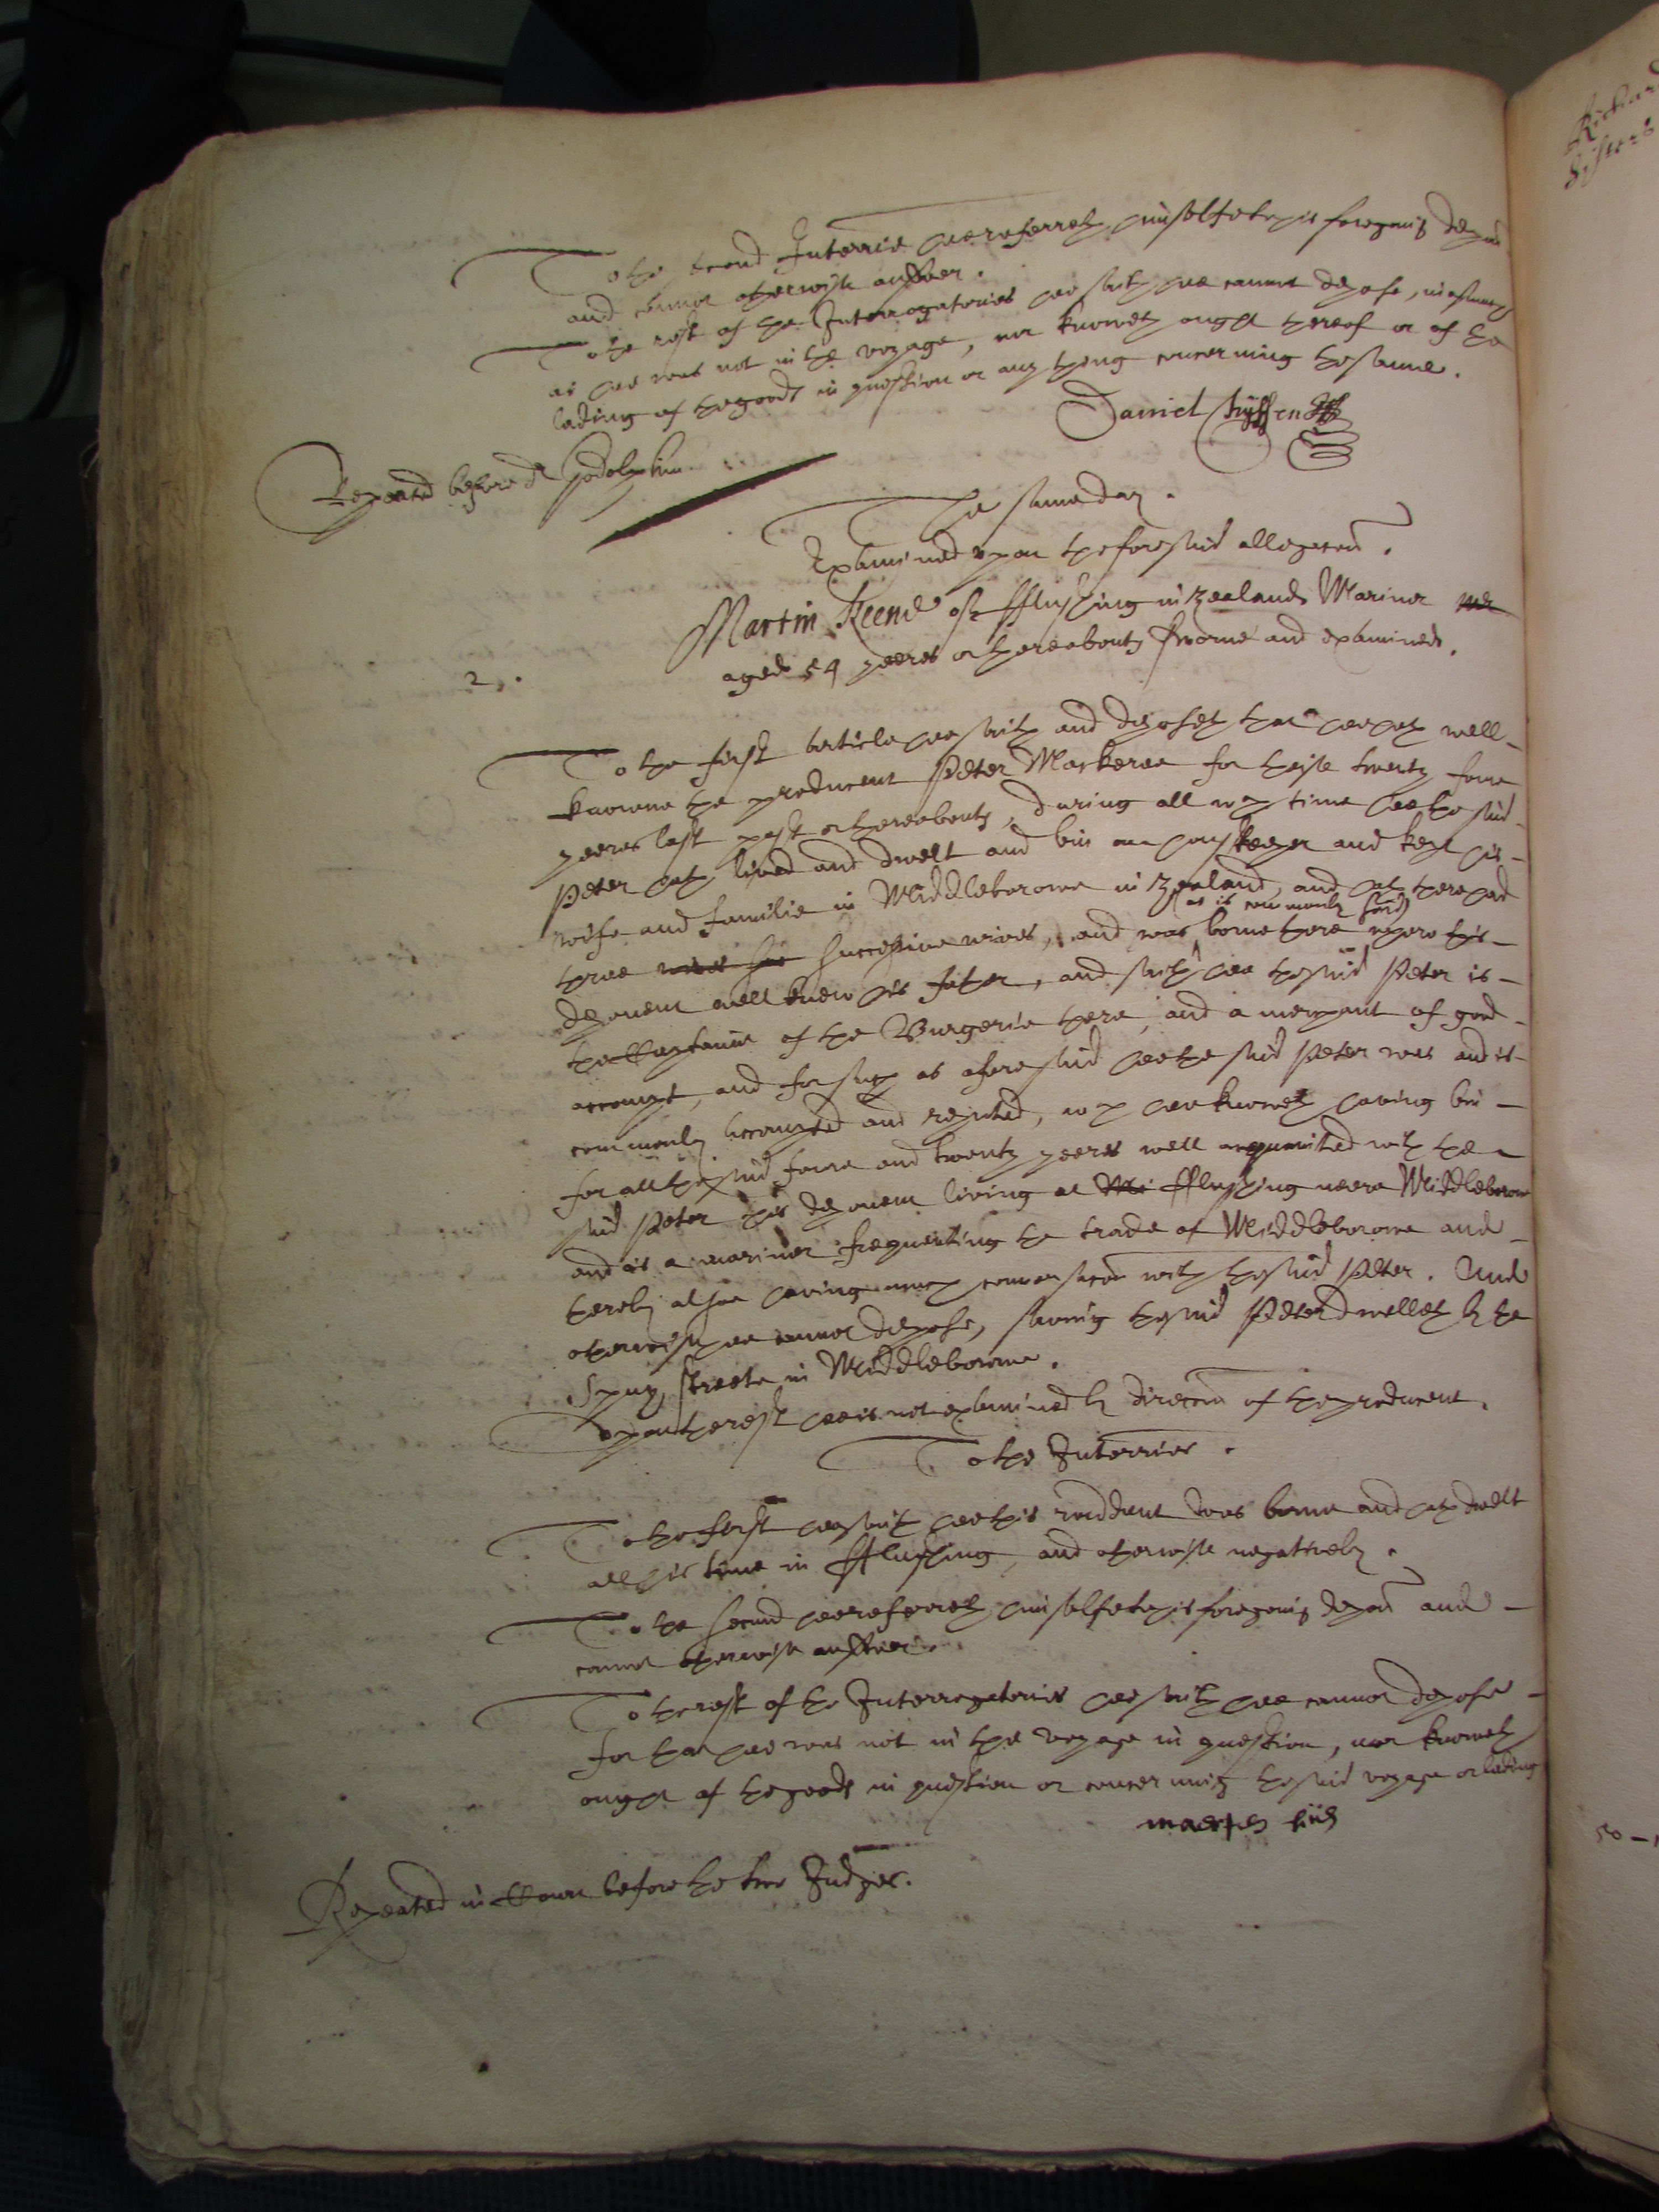 To the second Interrie hee referreth himselfe to his foregoing depon
and cannot otherwise answer.
To the rest of the Interrogatories hee saith hee cannot depose, inasmuch
as hee was not in the voyage, nor knoweth ought thereof or of the
lading of the goods in question or any thing concerning the same.
Daniel
Repeated before dr Godolphin
The same day.
Examined upon the foresaid allegacon.
2.
Martin Keene of fflushing in Zealand Mariner
aged 54 yeeres or thereabouts sworne and examined.
To the first article hee saith and deposeth that hee hath well
knowne the producent Peter Mackeree for theise twenty foure
yeeres last past or thereabouts, during all wch time hee the said
Peter hath lived and dwelt and bin an houskeeper and kept his
wife and familie in Middleborowe in Zealand, and hath there had
three successive wives, and was (as is commonly said) borne there where this
deponent well knew his father, and saith hee the said Peter is
the Captaine of the Burgerie there, and a merchant of good
accompt, and for such as aforesaid hee the said Peter was and is
commonly accompted and reputed, wch hee knoweth having bin
for all the said foure and twenty yeeres well acquainted with the
said Peter this deponent living at Mi fflushing neere Middleborowe
and is a mariner frequenting the trade of Middleborowe and
thereby alsoe having much conversacon with the said Peter. And
otherwise hee cannot depose, saving the said Peter dwelleth in the
Spuy streete in Middleborowe.
Upon the rest hee is not examined by direccon of the producent.
To the Interries.
To the first hee saith hee this rendent was borne and hath dwelt
all his time in fflushing, and otherwise negatively.
To the second hee referreth himselfe to his foregoing depon and
cannot otherwise answer.
To the rest of the Interrogatories hee saith hee cannot depose
for that hee was not in the voyage in question, nor knoweth
ought of the goods in question or concerning the said voyage or lading
Repeated in Court before the two Judges.